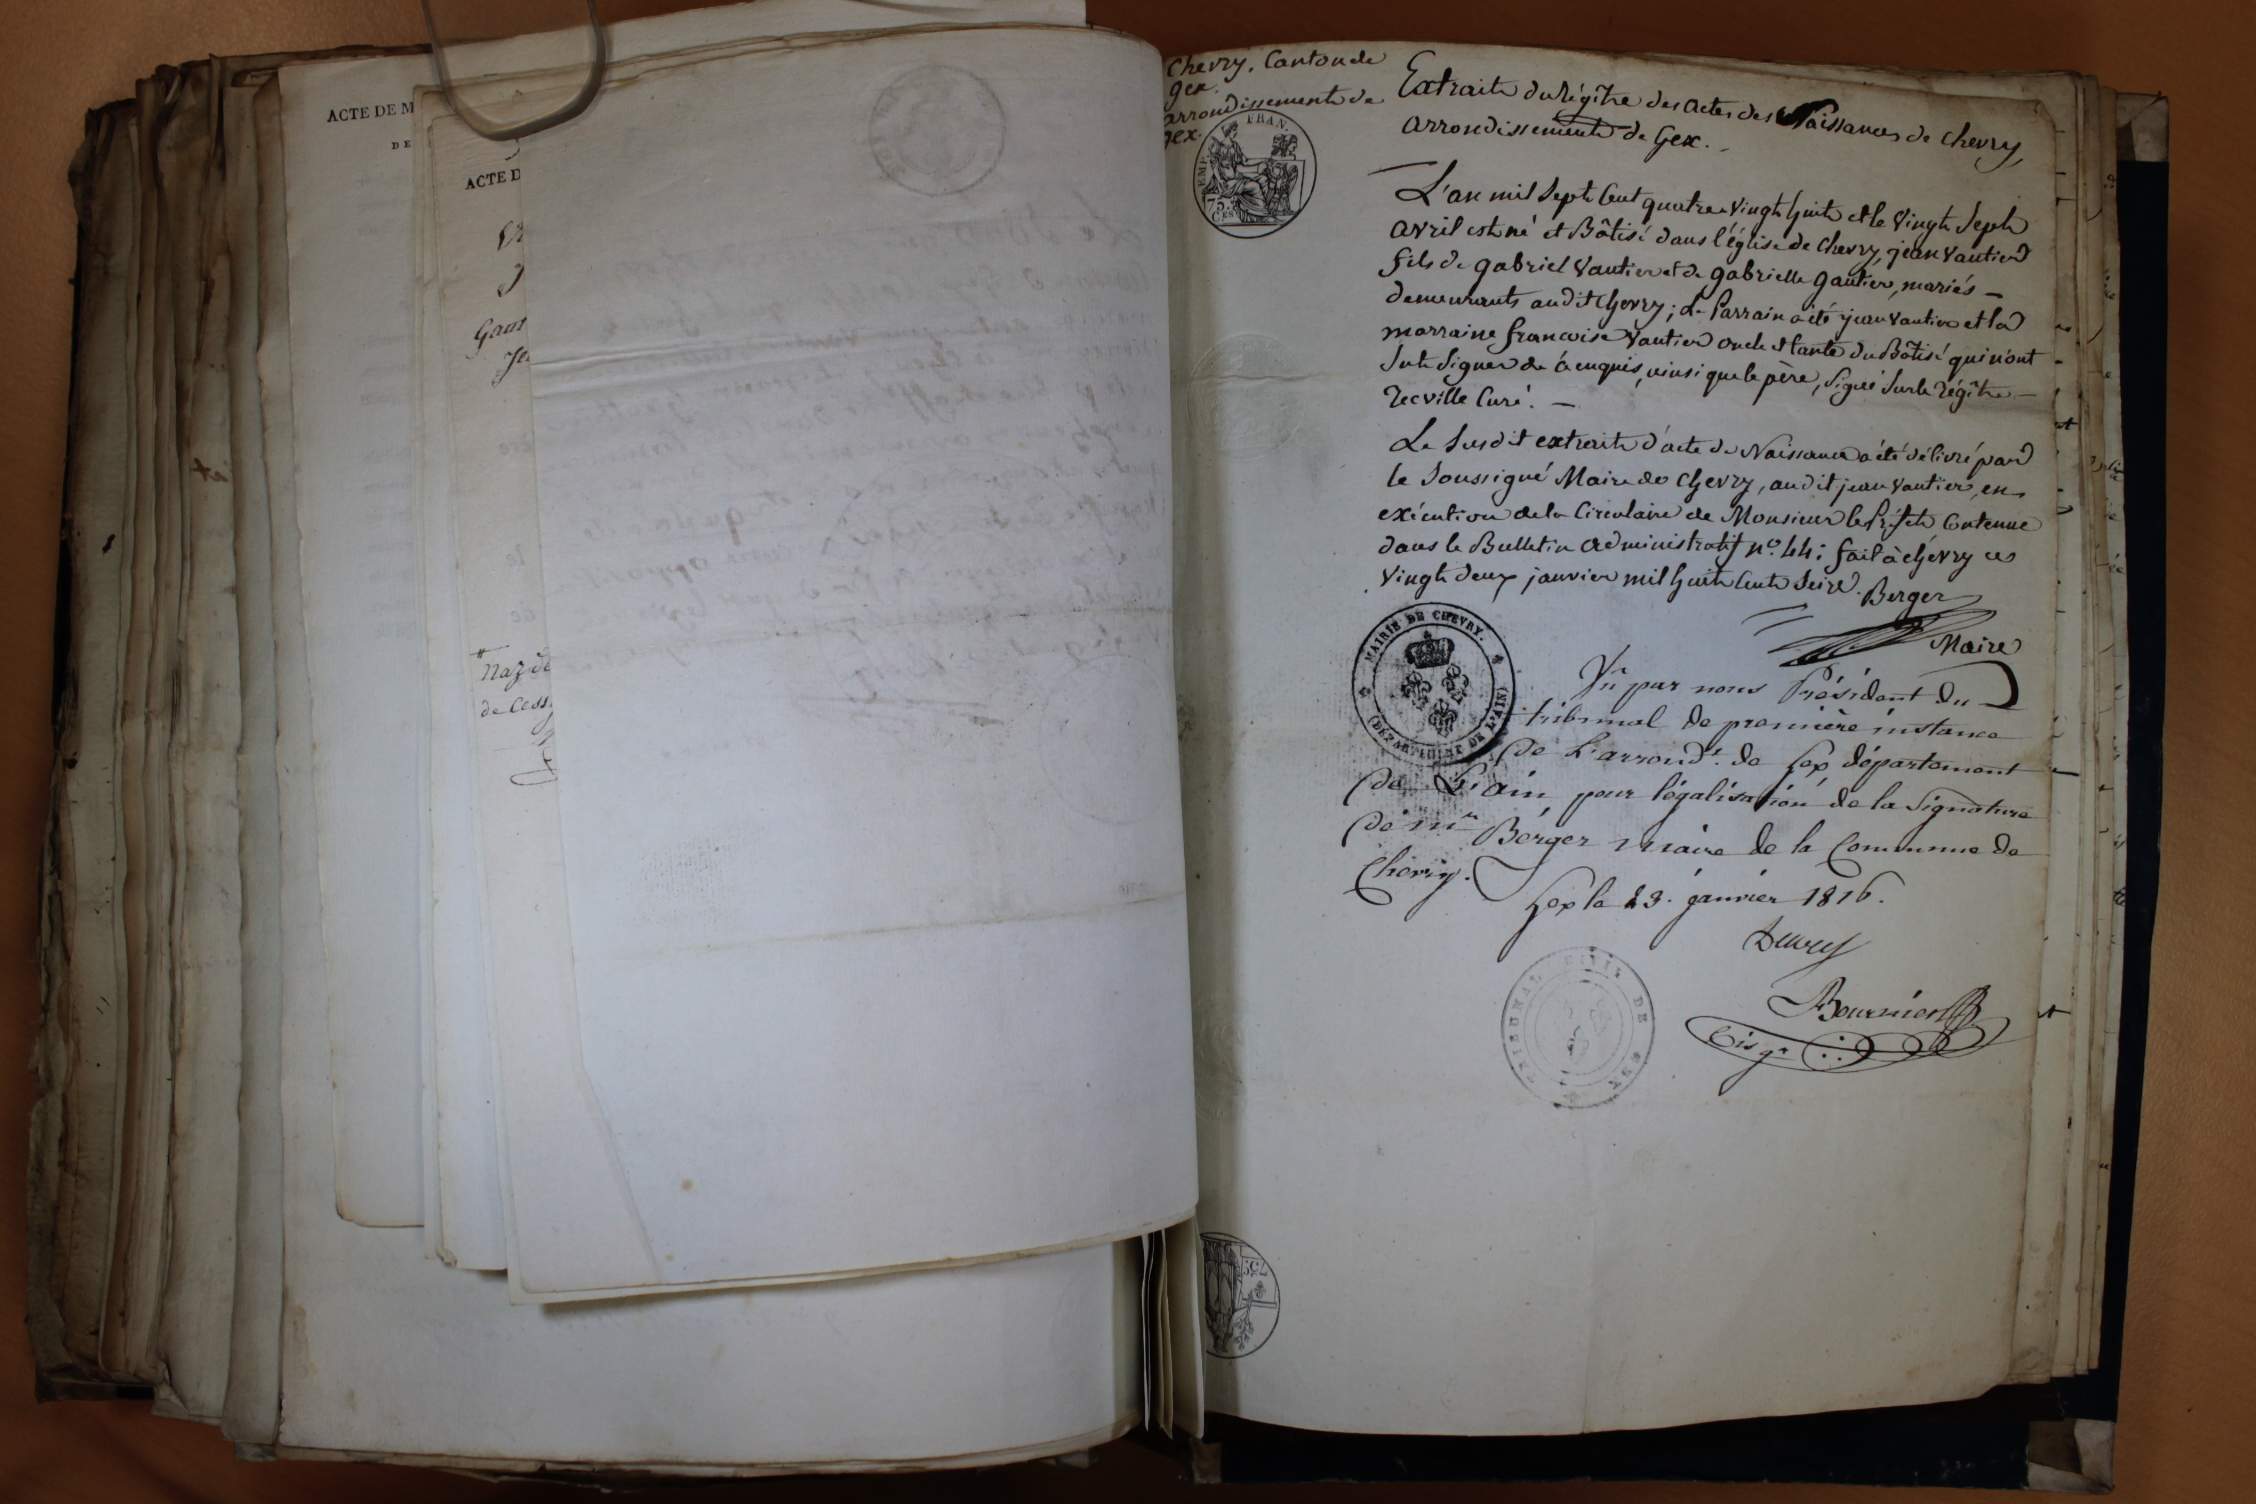 ACTE DE M
DE
ACTE D
Gaut
Naz de
de Cess
Chevry, Canton de
Gex.
arrondissement de
gex.
EMP. FRAN.
75. Ces
Extrait du Régître des actes des Naissances de Chevry,
arrondissement de Gex.
L'an mil Sept Cent quatre vingt huit et le vingt Sept
avril est né et Bâtisé dans l'église de Chevry, jean Vautier
fils de gabriel Vautier et de gabrielle gautier, mariés —
demeurants audit Chevry; Le Parrain a été jean Vautier et la
marraine francoise Vautier oncle et tante du Bâtisé qui n'ont
Sut Signer de ce enquis, ainsi que le père, Signé Sur le régître —
Curé. —
Le Susdit extrait d'acte de Naissance a été délivré par
le Soussigné Maire de Chevry, audit jean Vautier, en
exécution de la Circulaire de Monsieur le Préfet Contenue
dans le Bulletin administratif n.º 44; fait à Chévry ce
vingt deux janvier mil huit Cent Seize. Berger
Maire
MAIRIE DE CHEVRY.
(DÉPARTEMENT DE L'AIN)
Vû par nous Président du
tribunal de première instance
de L'arrond.t de Gex département
de L'ain, pour légalisation de la Signature
de Mr Berger maire de la Commune de
Chevry.
Gex le 23. janvier 1816.
Bournier
TRIBUNAL CIVIL DE GEX
75c